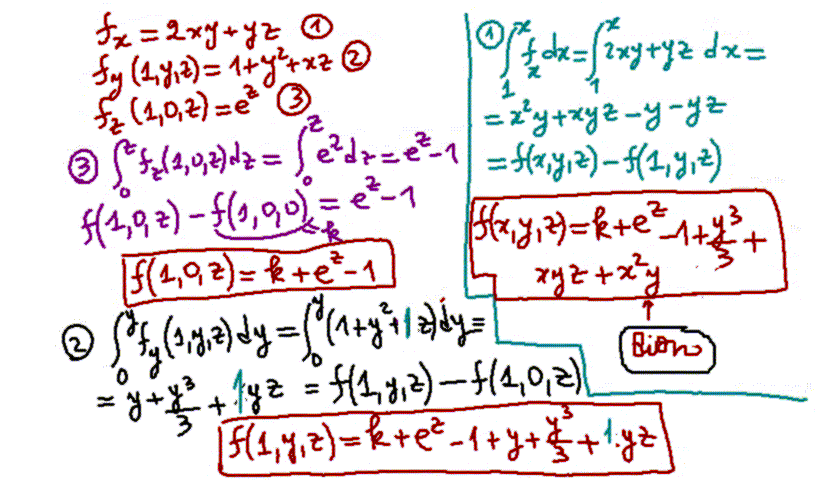 fₓ = 2xy + yz ①
f_y (1,y,z) = 1 + y² + xz ②
f_z (1,0,z) = e^z ③
③ ∫₀^z f_z(1,0,z) dz = ∫₀^z e^z dz = e^z − 1
f(1,0,z) − f(1,0,0) = e^z − 1
= k
f(1,0,z) = k + e^z − 1
② ∫₀^y f_y(1,y,z) dy = ∫₀^y (1 + y² + 1z) dy =
= y + y³/3 + 1·yz = f(1,y,z) − f(1,0,z)
f(1,y,z) = k + e^z − 1 + y + y³/3 + 1·yz
① ∫₁^x fₓ dx = ∫₁^x 2xy + yz dx =
= x²y + xyz − y − yz
= f(x,y,z) − f(1,y,z)
f(x,y,z) = k + e^z − 1 + y³/3 +
xyz + x²y